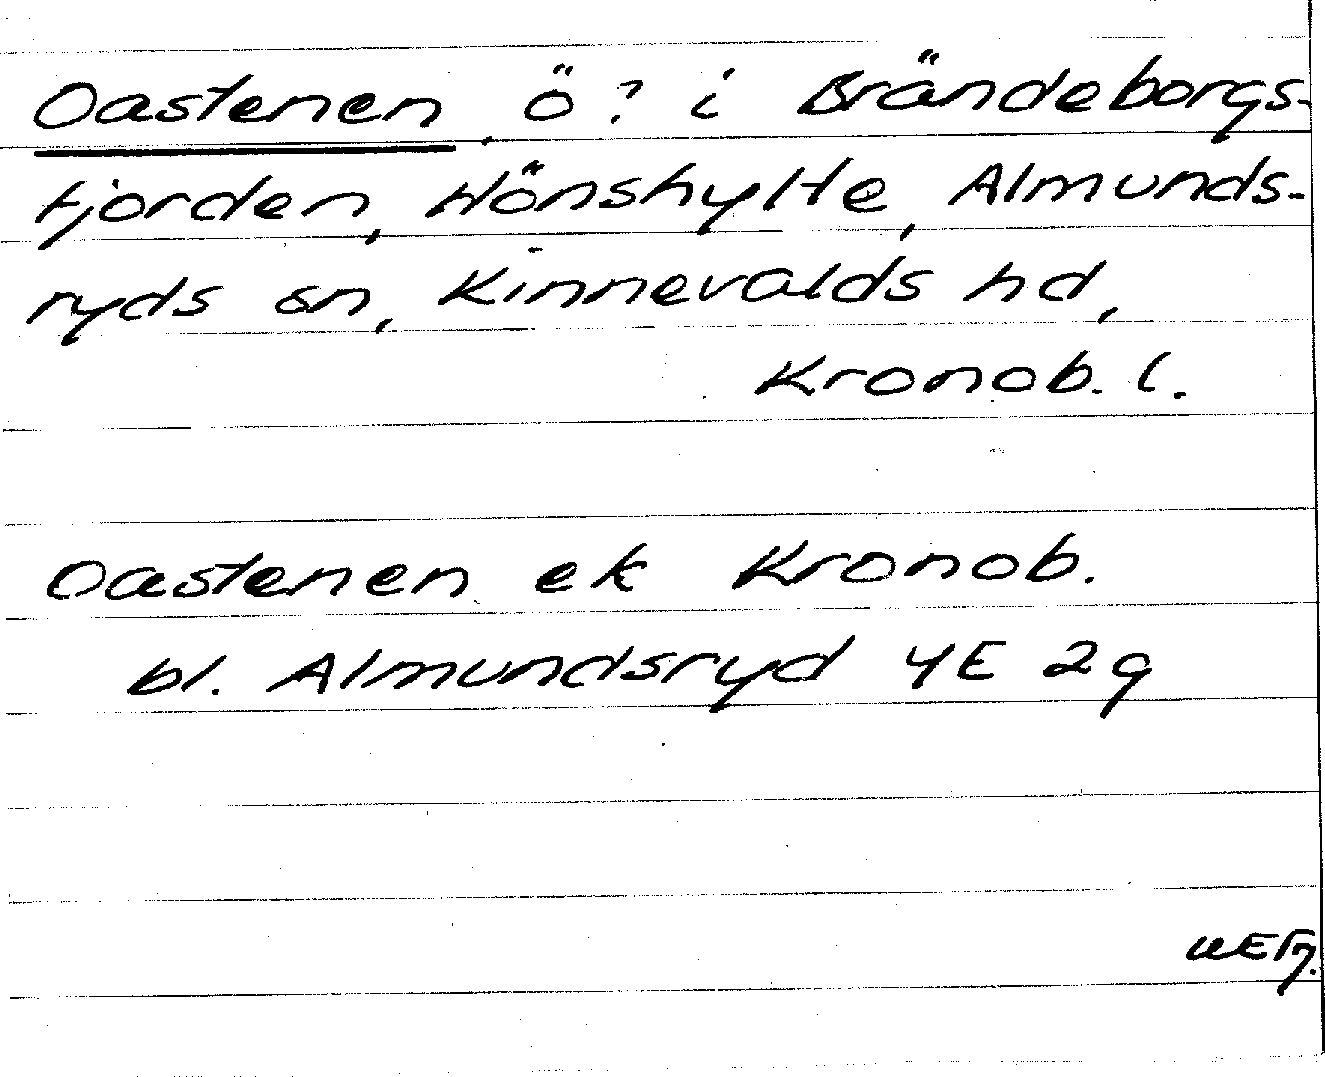 Oastenen, ö? i Brändeborgs-
fjorden, Hönshylte, Almunds-
ryds sn, Kinnevalds hd,
Kronob. l.
Oastenen ek Kronob.
bl. Almundsryd 4E 2g